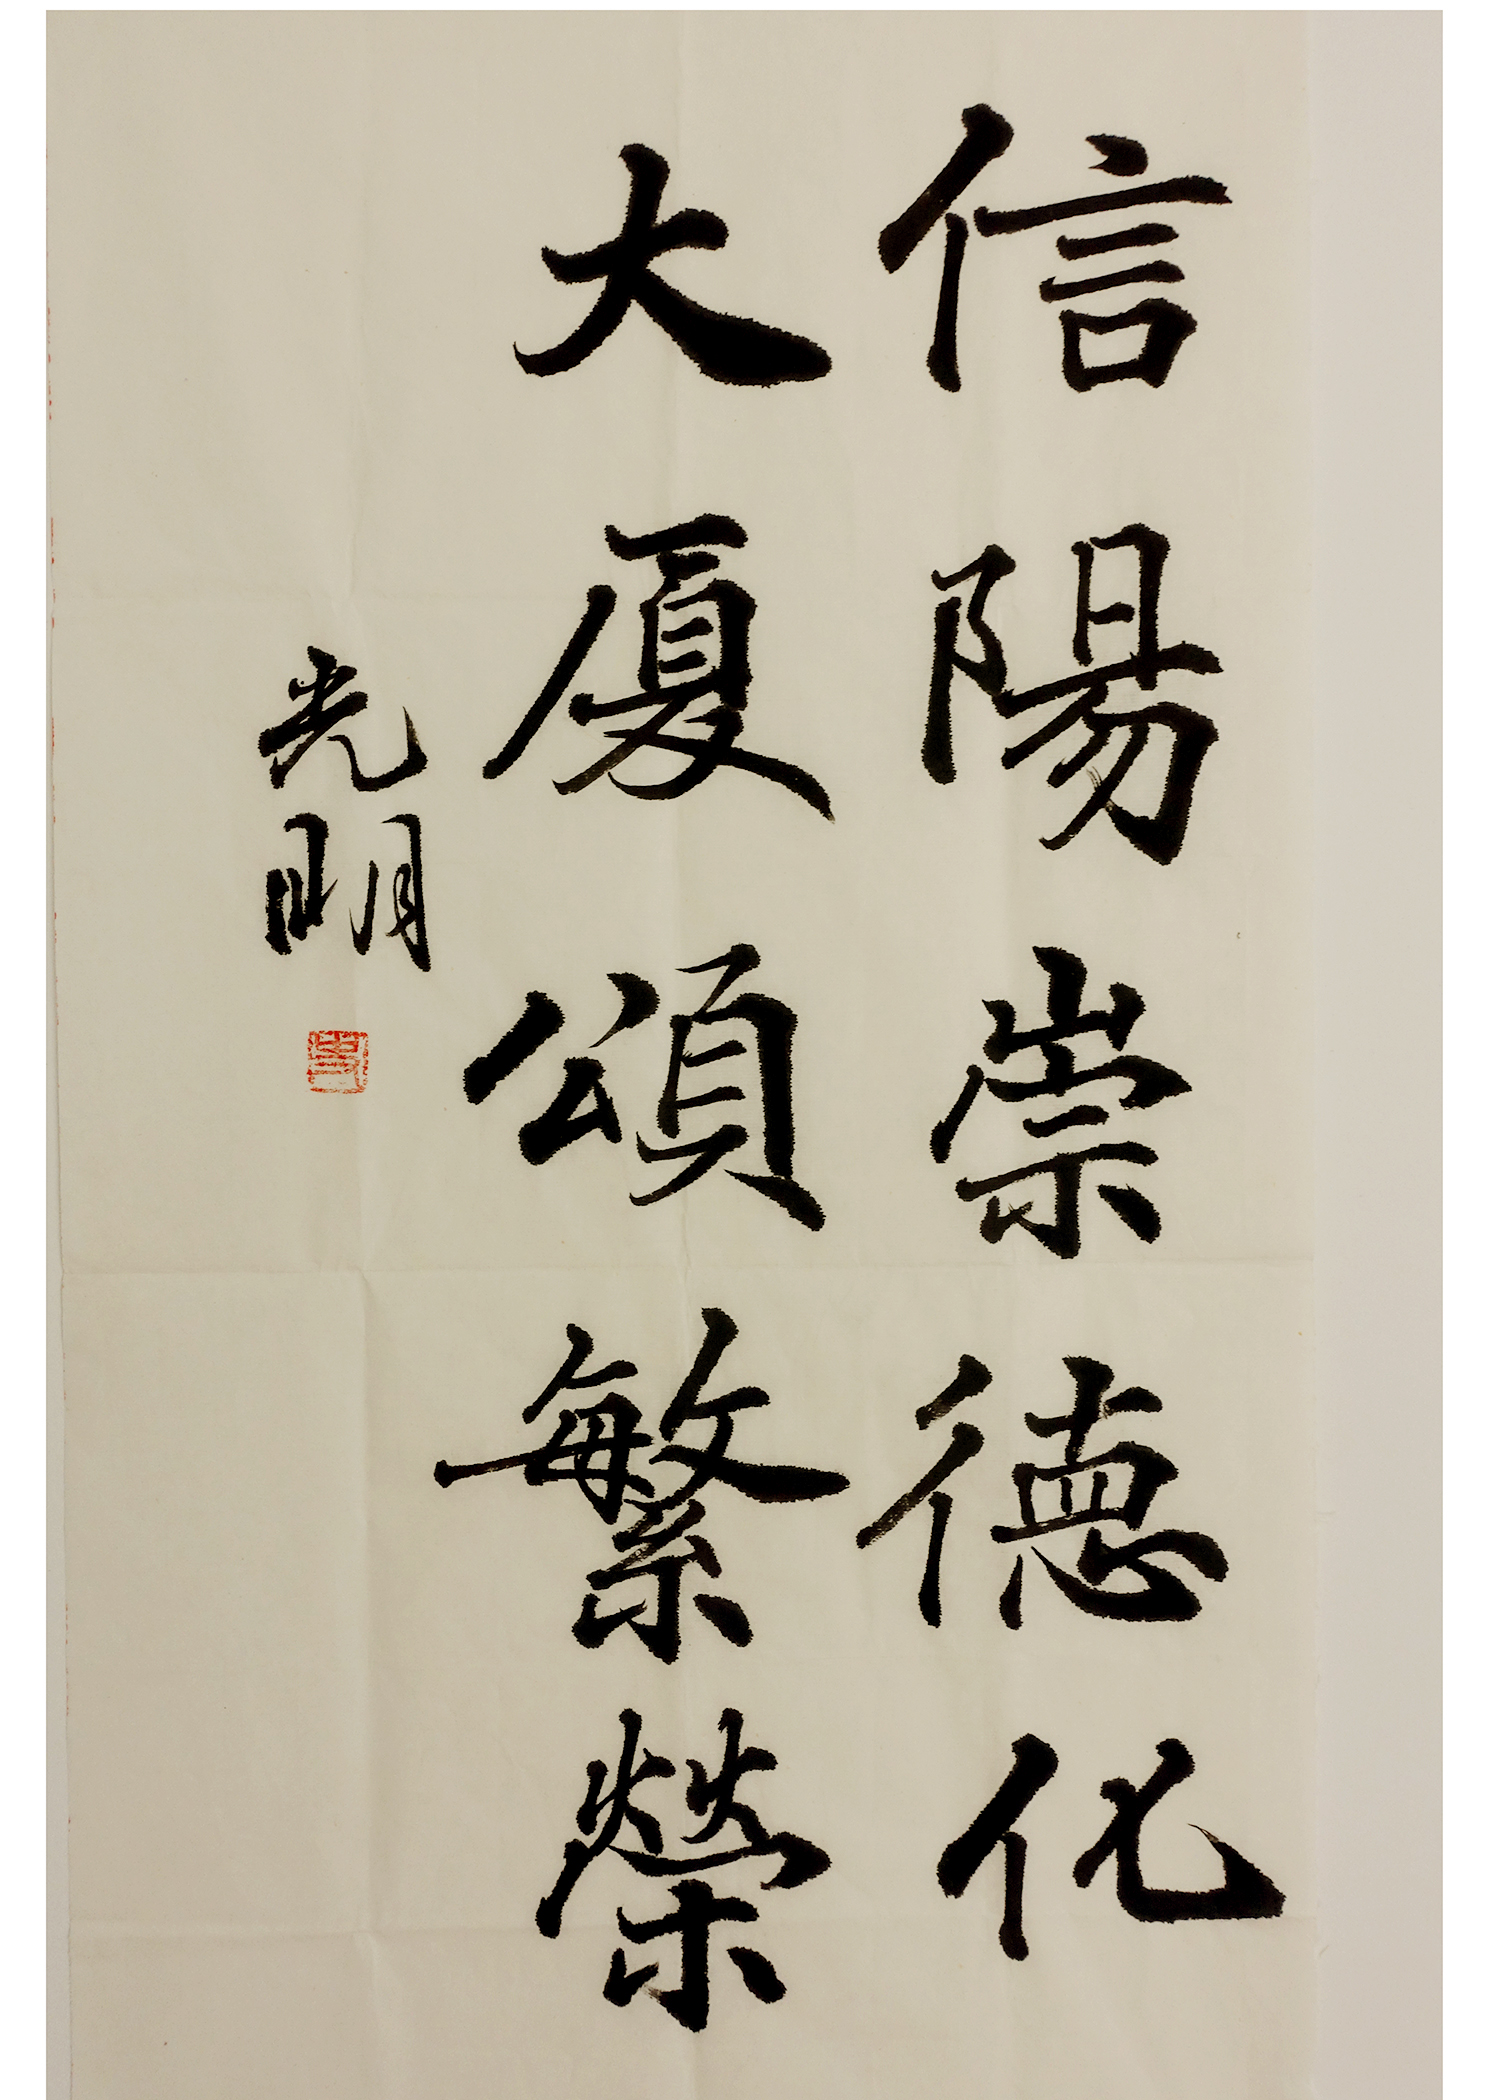 信陽崇德化
大廈頌繁榮
光明